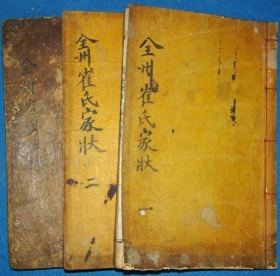 全州崔氏家狀 一
全州崔氏家狀 二
全州